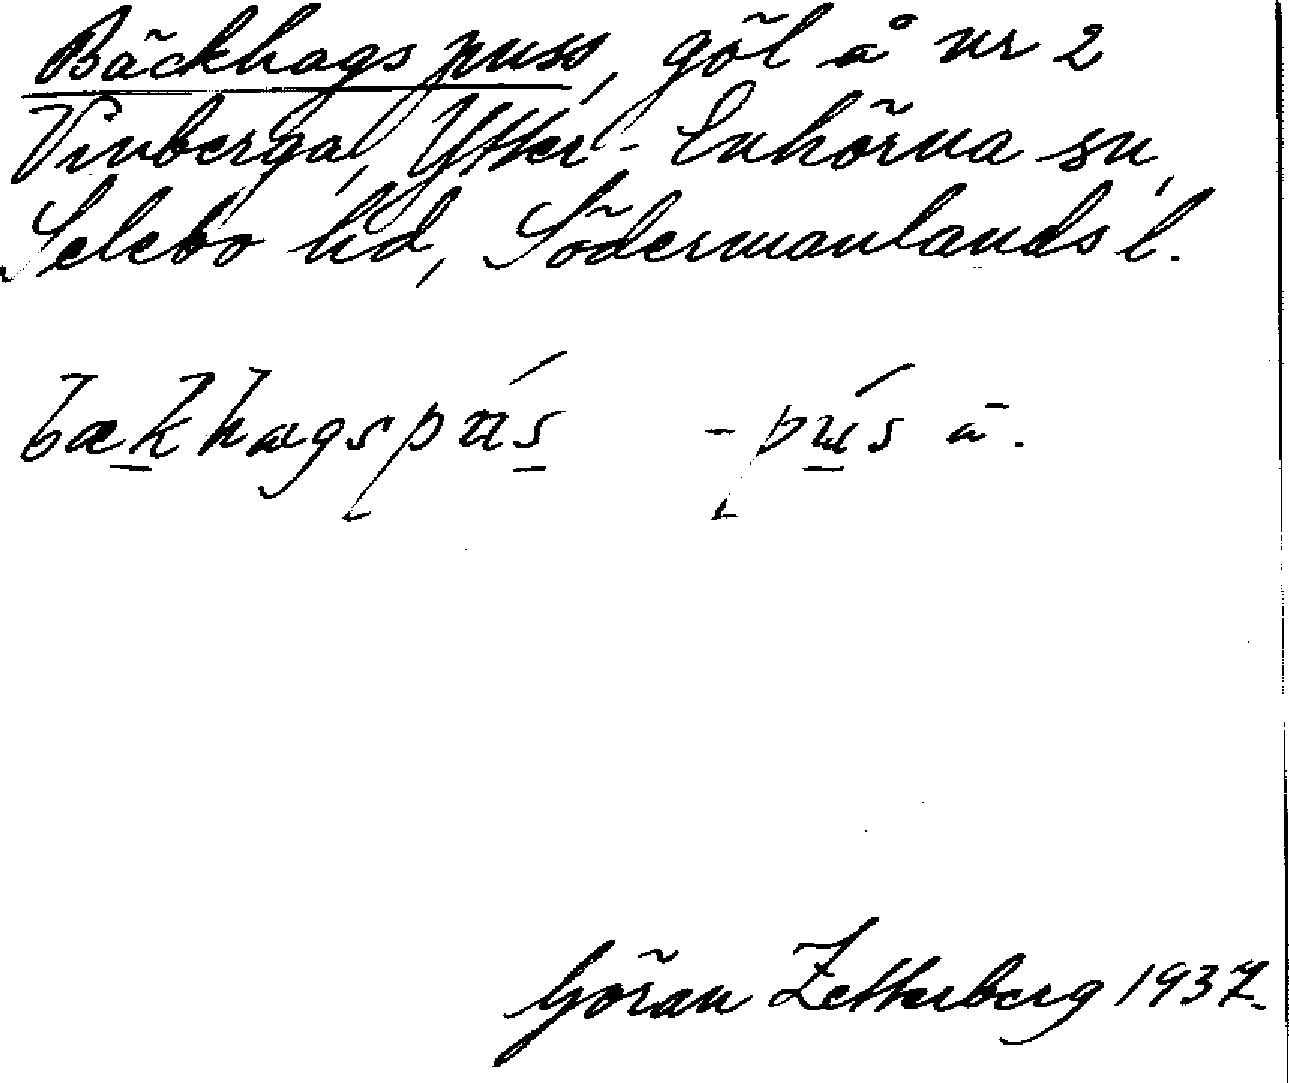 Bäckhags puss, göl å nr 2
Vinberga, Ytter-Enhörna sn,
Selebo hd, Södermanlands l.
bækhagspus̲ -pu̲s ā.
Göran Zetterberg 1937.